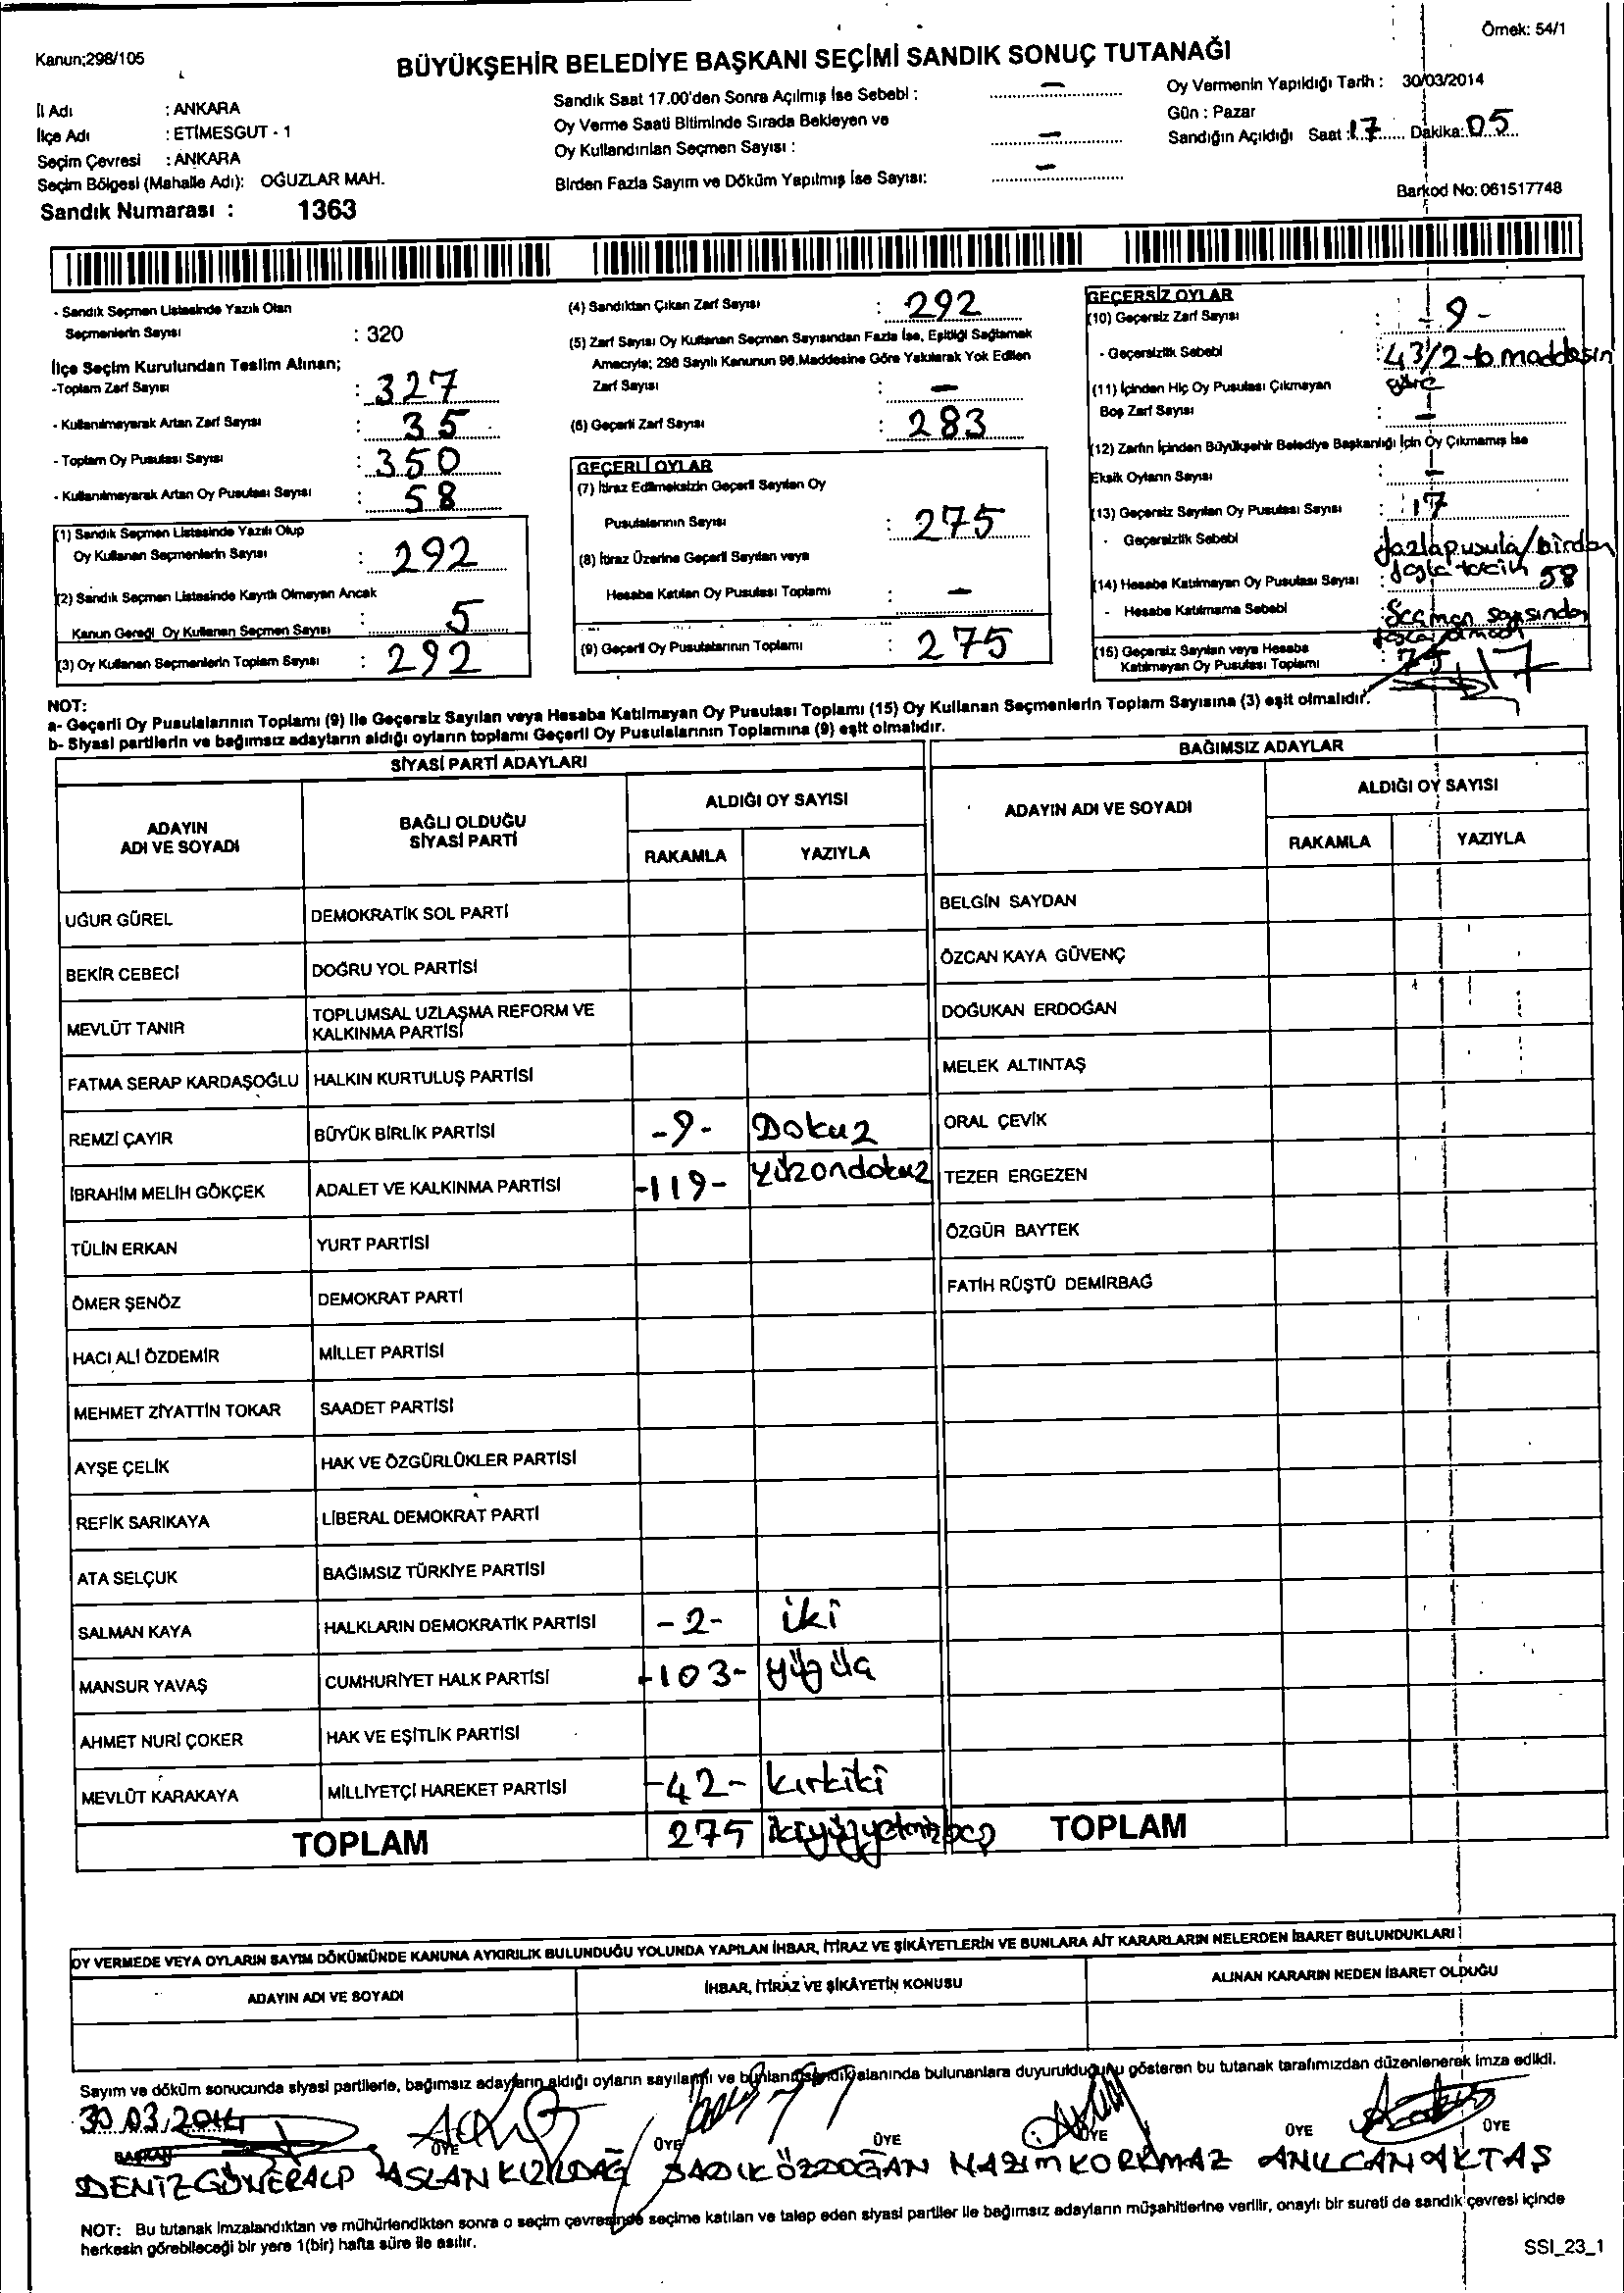 Örnek: 54/1
Kanun;298/105
BÜYÜKŞEHİR BELEDİYE BAŞKANI SEÇİMİ SANDIK SONUÇ TUTANAĞI
İl Adı : ANKARA
İlçe Adı : ETİMESGUT - 1
Seçim Çevresi : ANKARA
Seçim Bölgesi (Mahalle Adı): OĞUZLAR MAH.
Sandık Numarası : 1363
Sandık Saat 17.00'den Sonra Açılmış İse Sebebi : –
Oy Verme Saati Bitiminde Sırada Bekleyen ve
Oy Kullandırılan Seçmen Sayısı : –
Birden Fazla Sayım ve Döküm Yapılmış İse Sayısı: –
Oy Vermenin Yapıldığı Tarih : 30/03/2014
Gün : Pazar
Sandığın Açıldığı Saat : 17 Dakika: 05
Barkod No: 061517748
- Sandık Seçmen Listesinde Yazılı Olan
Seçmenlerin Sayısı : 320
İlçe Seçim Kurulundan Teslim Alınan;
-Toplam Zarf Sayısı : 327
- Kullanılmayarak Artan Zarf Sayısı : 35
- Toplam Oy Pusulası Sayısı : 350
- Kullanılmayarak Artan Oy Pusulası Sayısı : 58
(1) Sandık Seçmen Listesinde Yazılı Olup
Oy Kullanan Seçmenlerin Sayısı : 292
(2) Sandık Seçmen Listesinde Kayıtlı Olmayan Ancak
Kanun Gereği Oy Kullanan Seçmen Sayısı : 5
(3) Oy Kullanan Seçmenlerin Toplam Sayısı : 292
(4) Sandıktan Çıkan Zarf Sayısı : 292
(5) Zarf Sayısı Oy Kullanan Seçmen Sayısından Fazla İse, Eşitliği Sağlamak
Amacıyla; 298 Sayılı Kanunun 98.Maddesine Göre Yakılarak Yok Edilen
Zarf Sayısı : –
(6) Geçerli Zarf Sayısı : 283
GEÇERLİ OYLAR
(7) İtiraz Edilmeksizin Geçerli Sayılan Oy
Pusulalarının Sayısı : 275
(8) İtiraz Üzerine Geçerli Sayılan veya
Hesaba Katılan Oy Pusulası Toplamı : –
(9) Geçerli Oy Pusulalarının Toplamı : 275
GEÇERSİZ OYLAR
(10) Geçersiz Zarf Sayısı : - 9 -
- Geçersizlik Sebebi : 43/2-b maddesin
göre
(11) İçinden Hiç Oy Pusulası Çıkmayan
Boş Zarf Sayısı : –
(12) Zarfın İçinden Büyükşehir Belediye Başkanlığı İçin Oy Çıkmamış İse
Eksik Oyların Sayısı : –
(13) Geçersiz Sayılan Oy Pusulası Sayısı : 17
- Geçersizlik Sebebi fazla pusula/birden
fazla tercih
(14) Hesaba Katılmayan Oy Pusulası Sayısı : 58
- Hesaba Katılmama Sebebi : Seçmen sayısından
(15) Geçersiz Sayılan veya Hesaba
Katılmayan Oy Pusulası Toplamı : 75 17
NOT:
a- Geçerli Oy Pusulalarının Toplamı (9) ile Geçersiz Sayılan veya Hesaba Katılmayan Oy Pusulası Toplamı (15) Oy Kullanan Seçmenlerin Toplam Sayısına (3) eşit olmalıdır.
b- Siyasi partilerin ve bağımsız adayların aldığı oyların toplamı Geçerli Oy Pusulalarının Toplamına (9) eşit olmalıdır.
SİYASİ PARTİ ADAYLARI BAĞIMSIZ ADAYLAR
ADAYIN ADI VE SOYADI BAĞLI OLDUĞU SİYASİ PARTİ ALDIĞI OY SAYISI ADAYIN ADI VE SOYADI ALDIĞI OY SAYISI
RAKAMLA YAZIYLA RAKAMLA YAZIYLA
UĞUR GÜREL DEMOKRATİK SOL PARTİ BELGİN SAYDAN
BEKİR CEBECİ DOĞRU YOL PARTİSİ ÖZCAN KAYA GÜVENÇ
MEVLÜT TANIR TOPLUMSAL UZLAŞMA REFORM VE KALKINMA PARTİSİ DOĞUKAN ERDOĞAN
FATMA SERAP KARDAŞOĞLU HALKIN KURTULUŞ PARTİSİ MELEK ALTINTAŞ
REMZİ ÇAYIR BÜYÜK BİRLİK PARTİSİ -9- Dokuz ORAL ÇEVİK
İBRAHİM MELİH GÖKÇEK ADALET VE KALKINMA PARTİSİ -119- yüzondokuz TEZER ERGEZEN
TÜLİN ERKAN YURT PARTİSİ ÖZGÜR BAYTEK
ÖMER ŞENÖZ DEMOKRAT PARTİ FATİH RÜŞTÜ DEMİRBAĞ
HACI ALİ ÖZDEMİR MİLLET PARTİSİ
MEHMET ZİYATTİN TOKAR SAADET PARTİSİ
AYŞE ÇELİK HAK VE ÖZGÜRLÜKLER PARTİSİ
REFİK SARIKAYA LİBERAL DEMOKRAT PARTİ
ATA SELÇUK BAĞIMSIZ TÜRKİYE PARTİSİ
SALMAN KAYA HALKLARIN DEMOKRATİK PARTİSİ -2- iki
MANSUR YAVAŞ CUMHURİYET HALK PARTİSİ -103- yüzüç
AHMET NURİ ÇOKER HAK VE EŞİTLİK PARTİSİ
MEVLÜT KARAKAYA MİLLİYETÇİ HAREKET PARTİSİ -42- kırkiki
TOPLAM 275 ikiyüzyetmişbeş TOPLAM
OY VERMEDE VEYA OYLARIN SAYIM DÖKÜMÜNDE KANUNA AYKIRILIK BULUNDUĞU YOLUNDA YAPILAN İHBAR, İTİRAZ VE ŞİKÂYETLERİN VE BUNLARA AİT KARARLARIN NELERDEN İBARET BULUNDUKLARI
ADAYIN ADI VE SOYADI İHBAR, İTİRAZ VE ŞİKÂYETİN KONUSU ALINAN KARARIN NEDEN İBARET OLDUĞU
Sayım ve döküm sonucunda siyasi partilerle, bağımsız adayların aldığı oyların sayılarını ve bunların sandık alanında bulunanlara duyurulduğunu gösteren bu tutanak tarafımızdan düzenlenerek imza edildi.
30.03.2014
BAŞKAN ÜYE ÜYE ÜYE ÜYE ÜYE ÜYE
DENİZ GÜNERALP ASLAN KIZILDAĞ SADIK ÖZDOĞAN NAZIM KORKMAZ ANILCAN AKTAŞ
NOT: Bu tutanak imzalandıktan ve mühürlendikten sonra o seçim çevresinde seçime katılan ve talep eden siyasi partiler ile bağımsız adayların müşahitlerine verilir, onaylı bir sureti de sandık çevresi içinde
herkesin görebileceği bir yere 1(bir) hafta süre ile asılır.
SSI_23_1